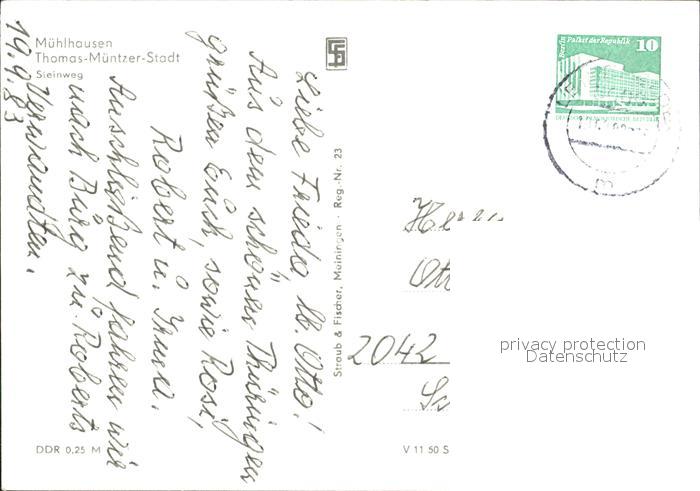 Mühlhausen
Thomas-Müntzer-Stadt
Steinweg
19.9.83
Liebe Frieda, lb. Otto!
Aus dem schönen Thüringen
grüßen Euch, sowie Rosi,
Robert u. Irma.
Anschließend fahren wir
nach Burg zu Roberts
Verwandten.
DDR 0,25 M
V 11 50 S
Straub & Fischer, Meiningen · Reg.-Nr. 23
Berlin Palast der Republik
10
DEUTSCHE DEMOKRATISCHE REPUBLIK
Herrn
Ott
2042
privacy protection
Datenschutz